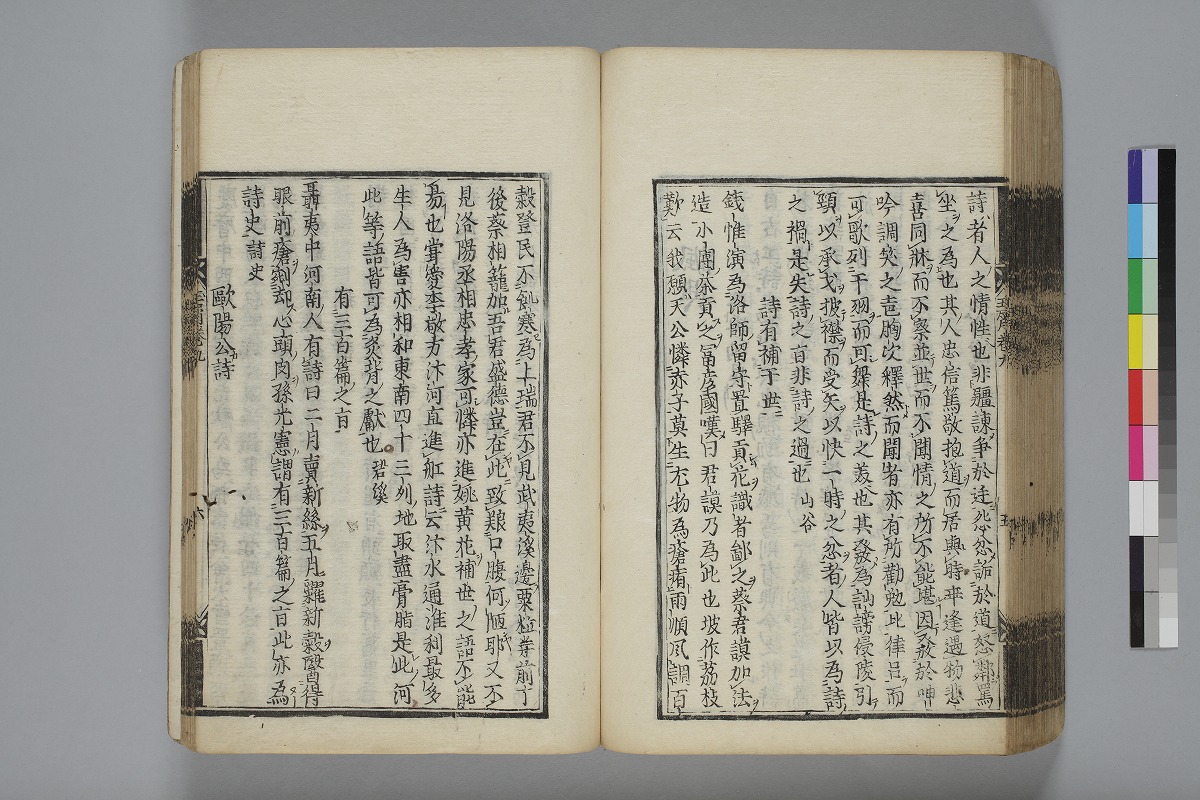 詩者人之情性也非彊諫爭於廷怨忿詬於道怒鄰罵
坐之為也其人忠信篤敬抱道而居與時乖逢遇物悲
喜同牀而不察並世而不聞情之所不能堪因發於呻
吟調笑之聲胸次釋然而聞者亦有所勸勉比律呂而
可歌列干羽而可舞是詩之美也其發為訕謗侵陵引
頸以承戈披襟而受矢以快一時之忿者人皆以為詩
之禍是失詩之旨非詩之過也 山谷
詩有補于世
錢惟演為洛師留守置驛貢花識者鄙之蔡君謨加法
造小團茶貢之富彥國嘆曰君謨乃為此也坡作荔枝
歎云我願天公憐赤子莫生尤物為瘡痏雨順風調百
穀登民不飢寒為上瑞君不見武夷溪邊粟粒芽前丁
後蔡相籠加吾君盛德豈在此致養口腹何陋耶又不
見洛陽丞相忠孝家可憐亦進姚黃花補世之語不能
易也嘗愛李敬方汴河直進舡詩云汴水通淮利最多
生人為害亦相和東南四十三州地取盡膏脂是此河
此等語皆可為炙背之獻也 碧溪
有三百篇之旨
聶夷中河南人有詩曰二月賣新絲五月糶新穀醫得
眼前瘡剜却心頭肉孫光憲謂有三百篇之旨此亦為
詩史 詩史
歐陽公詩
玉屑卷九
五
玉屑卷九
六